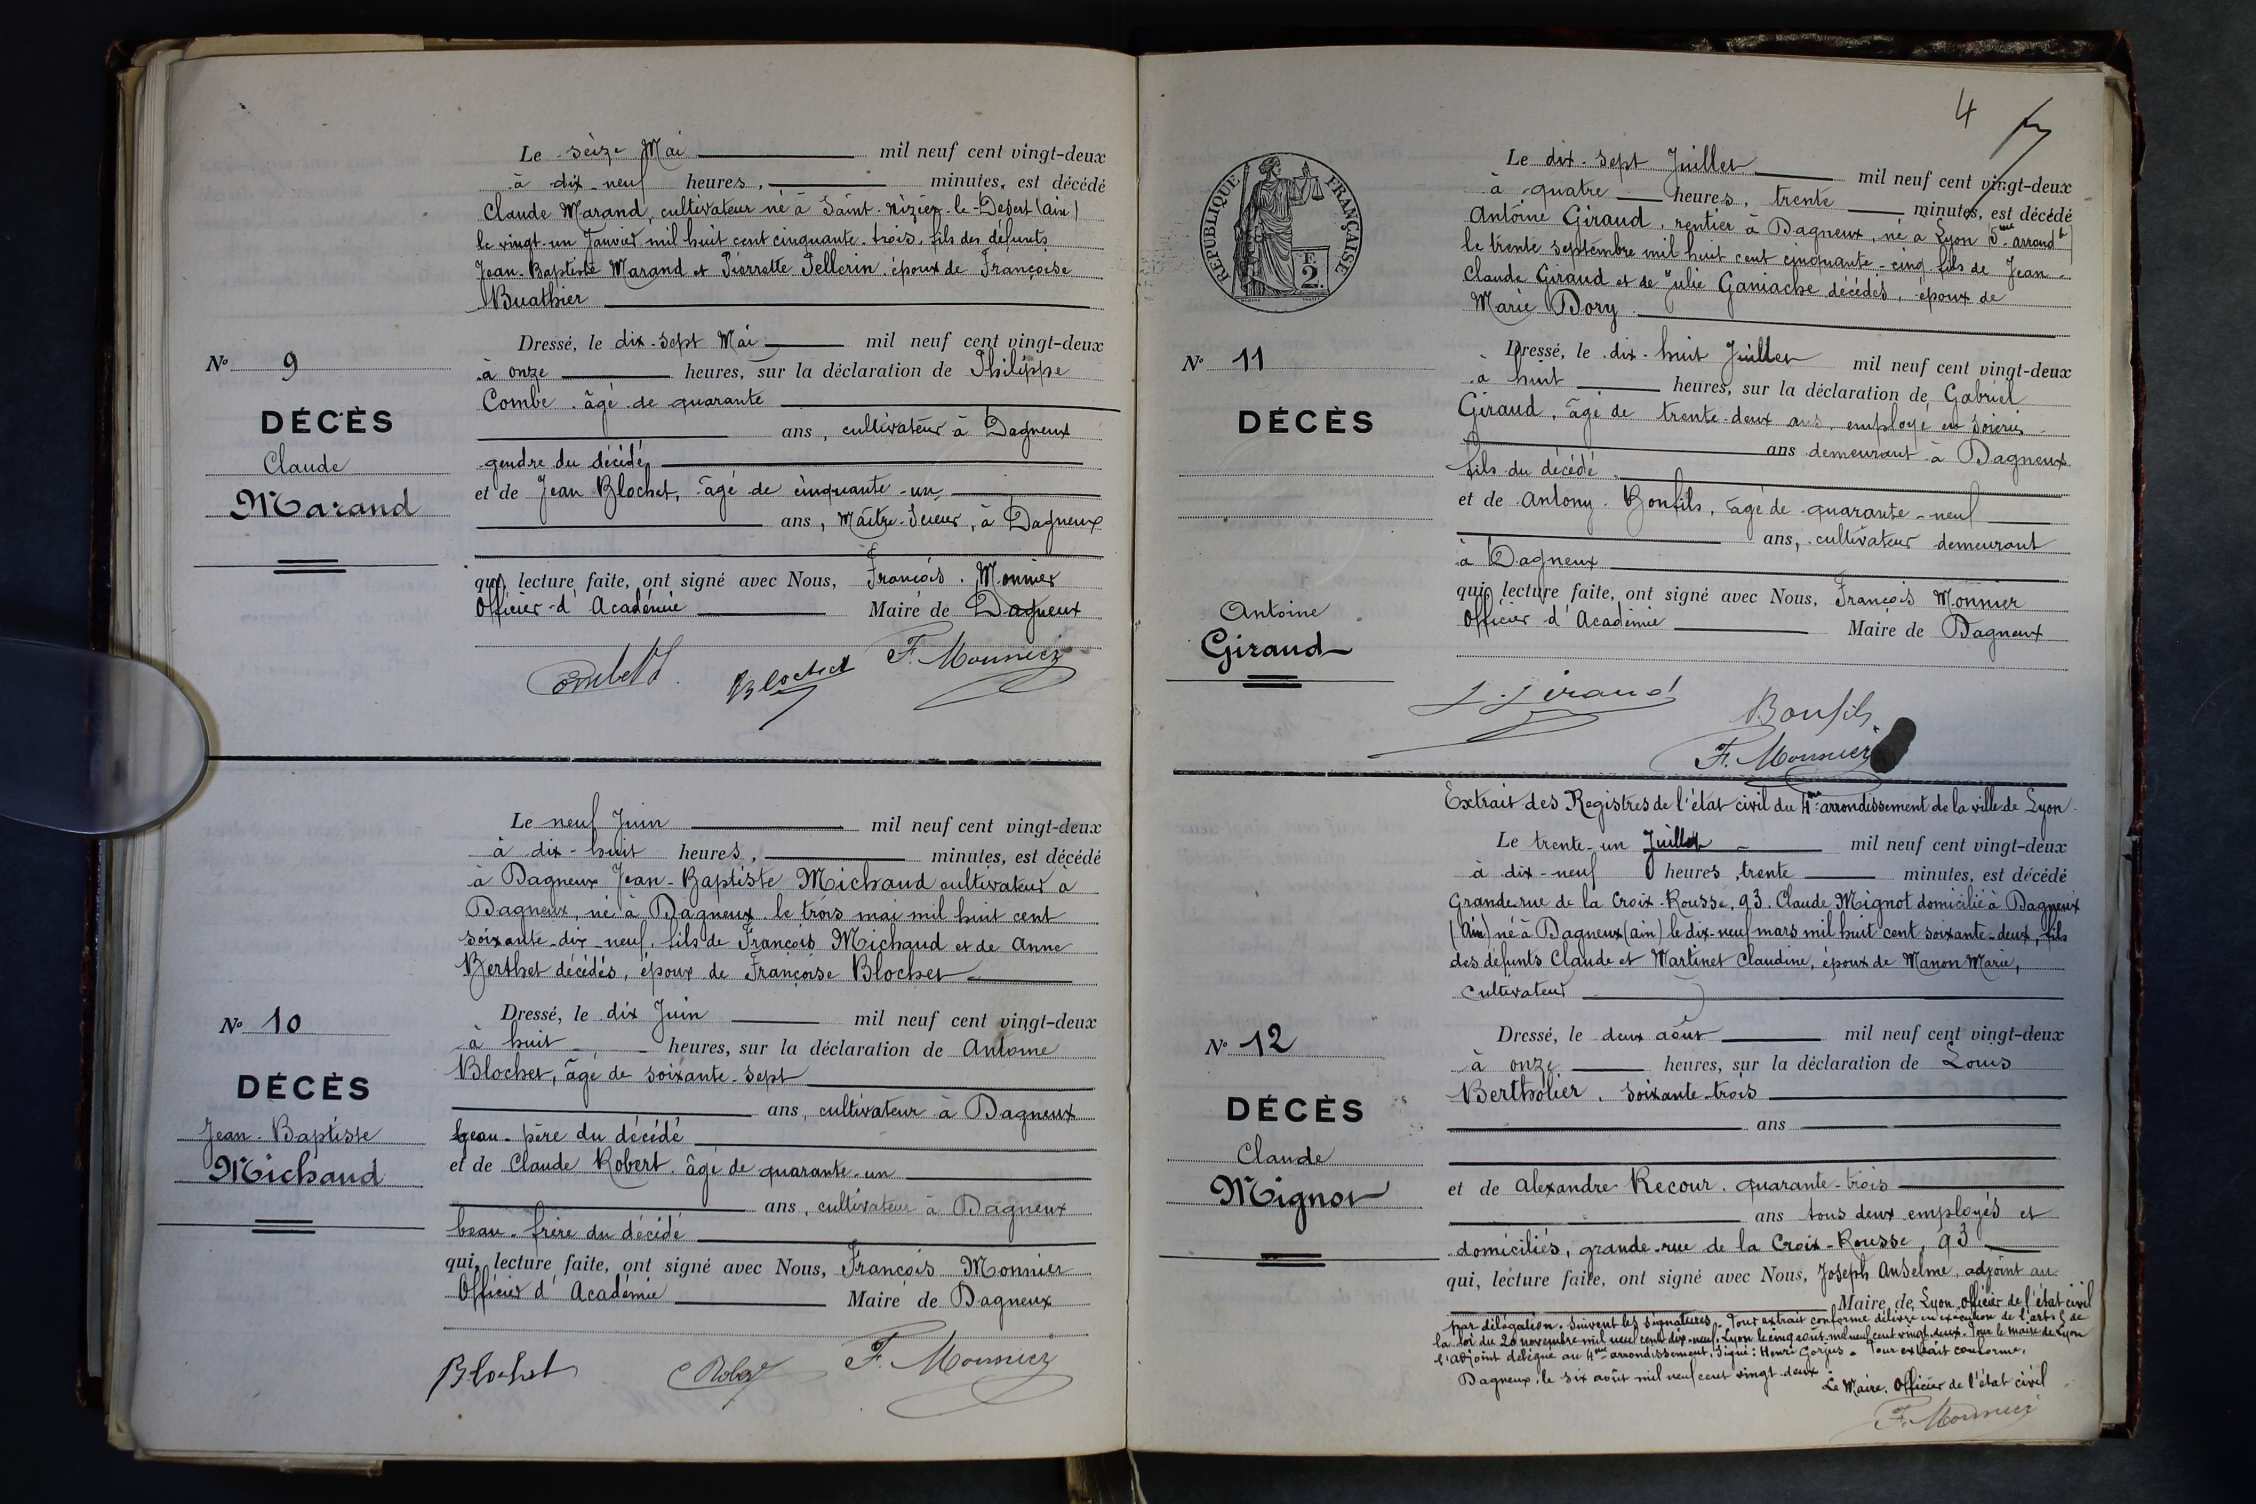 Le seize Mai mil neuf cent vingt-deux
à dix-neuf heures, minutes, est décédé
Claude Marand, cultivateur né à Saint-Nizier-le-Désert (ain)
le vingt-un Janvier mil huit cent cinquante-trois, fils des défunts
Jean-Baptiste Marand et Pierrette Pellerin, époux de Françoise
Buathier
Dressé, le dix-sept Mai mil neuf cent vingt-deux
à onze heures, sur la déclaration de Philippe
Combe, âgé de quarante
ans, cultivateur à Dagneux
gendre du décédé
et de Jean Blochet, âgé de cinquante-un
ans, Maître-Scieur, à Dagneux
qui, lecture faite, ont signé avec Nous, François Monnier
Officier d'Académie Maire de Dagneux
Blochet F. Monnier
No 9
DÉCÈS
Claude
Marand
Le neuf Juin mil neuf cent vingt-deux
à dix-huit heures, minutes, est décédé
à Dagneux Jean-Baptiste Michaud cultivateur à
Dagneux, né à Dagneux le trois mai mil huit cent
soixante-dix-neuf, fils de François Michaud et de Anne
Berthet décédés, époux de Françoise Blochet
Dressé, le dix Juin mil neuf cent vingt-deux
à huit heures, sur la déclaration de Antoine
Blochet, âgé de soixante-sept
ans, cultivateur à Dagneux
beau-père du décédé
et de Claude Robert, âgé de quarante-un
ans, cultivateur à Dagneux
beau-frère du décédé
qui, lecture faite, ont signé avec Nous, François Monnier
Officier d'Académie Maire de Dagneux
Blochet C Robert F. Monnier
No 10
DÉCÈS
Jean-Baptiste
Michaud
4
RÉPUBLIQUE FRANÇAISE
F.
2.
Le dix-sept Juillet mil neuf cent vingt-deux
à quatre heures, trente minutes, est décédé
Antoine Giraud, rentier à Dagneux, né à Lyon (5me arrondt)
le trente septembre mil huit cent cinquante-cinq fils de Jean-
Claude Giraud et de Julie Ganiache décédés, époux de
Marie Dory
Dressé, le dix-huit Juillet mil neuf cent vingt-deux
à huit heures, sur la déclaration de Gabriel
Giraud, âgé de trente-deux ans, employé en soieries
ans demeurant à Dagneux
fils du décédé
et de Antony Bonfils, âgé de quarante-neuf
ans, cultivateur demeurant
à Dagneux
qui, lecture faite, ont signé avec Nous, François Monnier
Officier d'Académie Maire de Dagneux
Giraud Bonfils
F. Monnier
No 11
DÉCÈS
Antoine
Giraud
Extrait des Registres de l'état civil du 4me arrondissement de la ville de Lyon
Le trente-un Juillet mil neuf cent vingt-deux
à dix-neuf heures, trente minutes, est décédé
Grande-rue de la Croix-Rousse, 93. Claude Mignot domicilié à Dagneux
(Ain) né à Dagneux (ain) le dix-neuf mars mil huit cent soixante-deux, fils
des défunts Claude et Martinet Claudine, époux de Manon Marie,
cultivateur
Dressé, le deux août mil neuf cent vingt-deux
à onze heures, sur la déclaration de Louis
Bertholier, soixante-trois
ans
et de Alexandre Recour, quarante-trois
ans tous deux employés et
domiciliés, grande-rue de la Croix-Rousse, 93
qui, lecture faite, ont signé avec Nous, Joseph Anselme, adjoint au
Maire de Lyon, Officier de l'état civil
par délégation. Suivent les signatures. Pour extrait conforme délivré en exécution de l'art. 5 de
la loi du 20 novembre mil neuf cent dix-neuf. Lyon le cinq août mil neuf cent vingt-deux. Pour le maire de Lyon
l'adjoint délégué au 4me arrondissement, Signé: Henri Gorjus. Pour extrait conforme,
Dagneux, le six août mil neuf cent vingt-deux
Le Maire, Officier de l'état civil
F. Monnier
No 12
DÉCÈS
Claude
Mignot